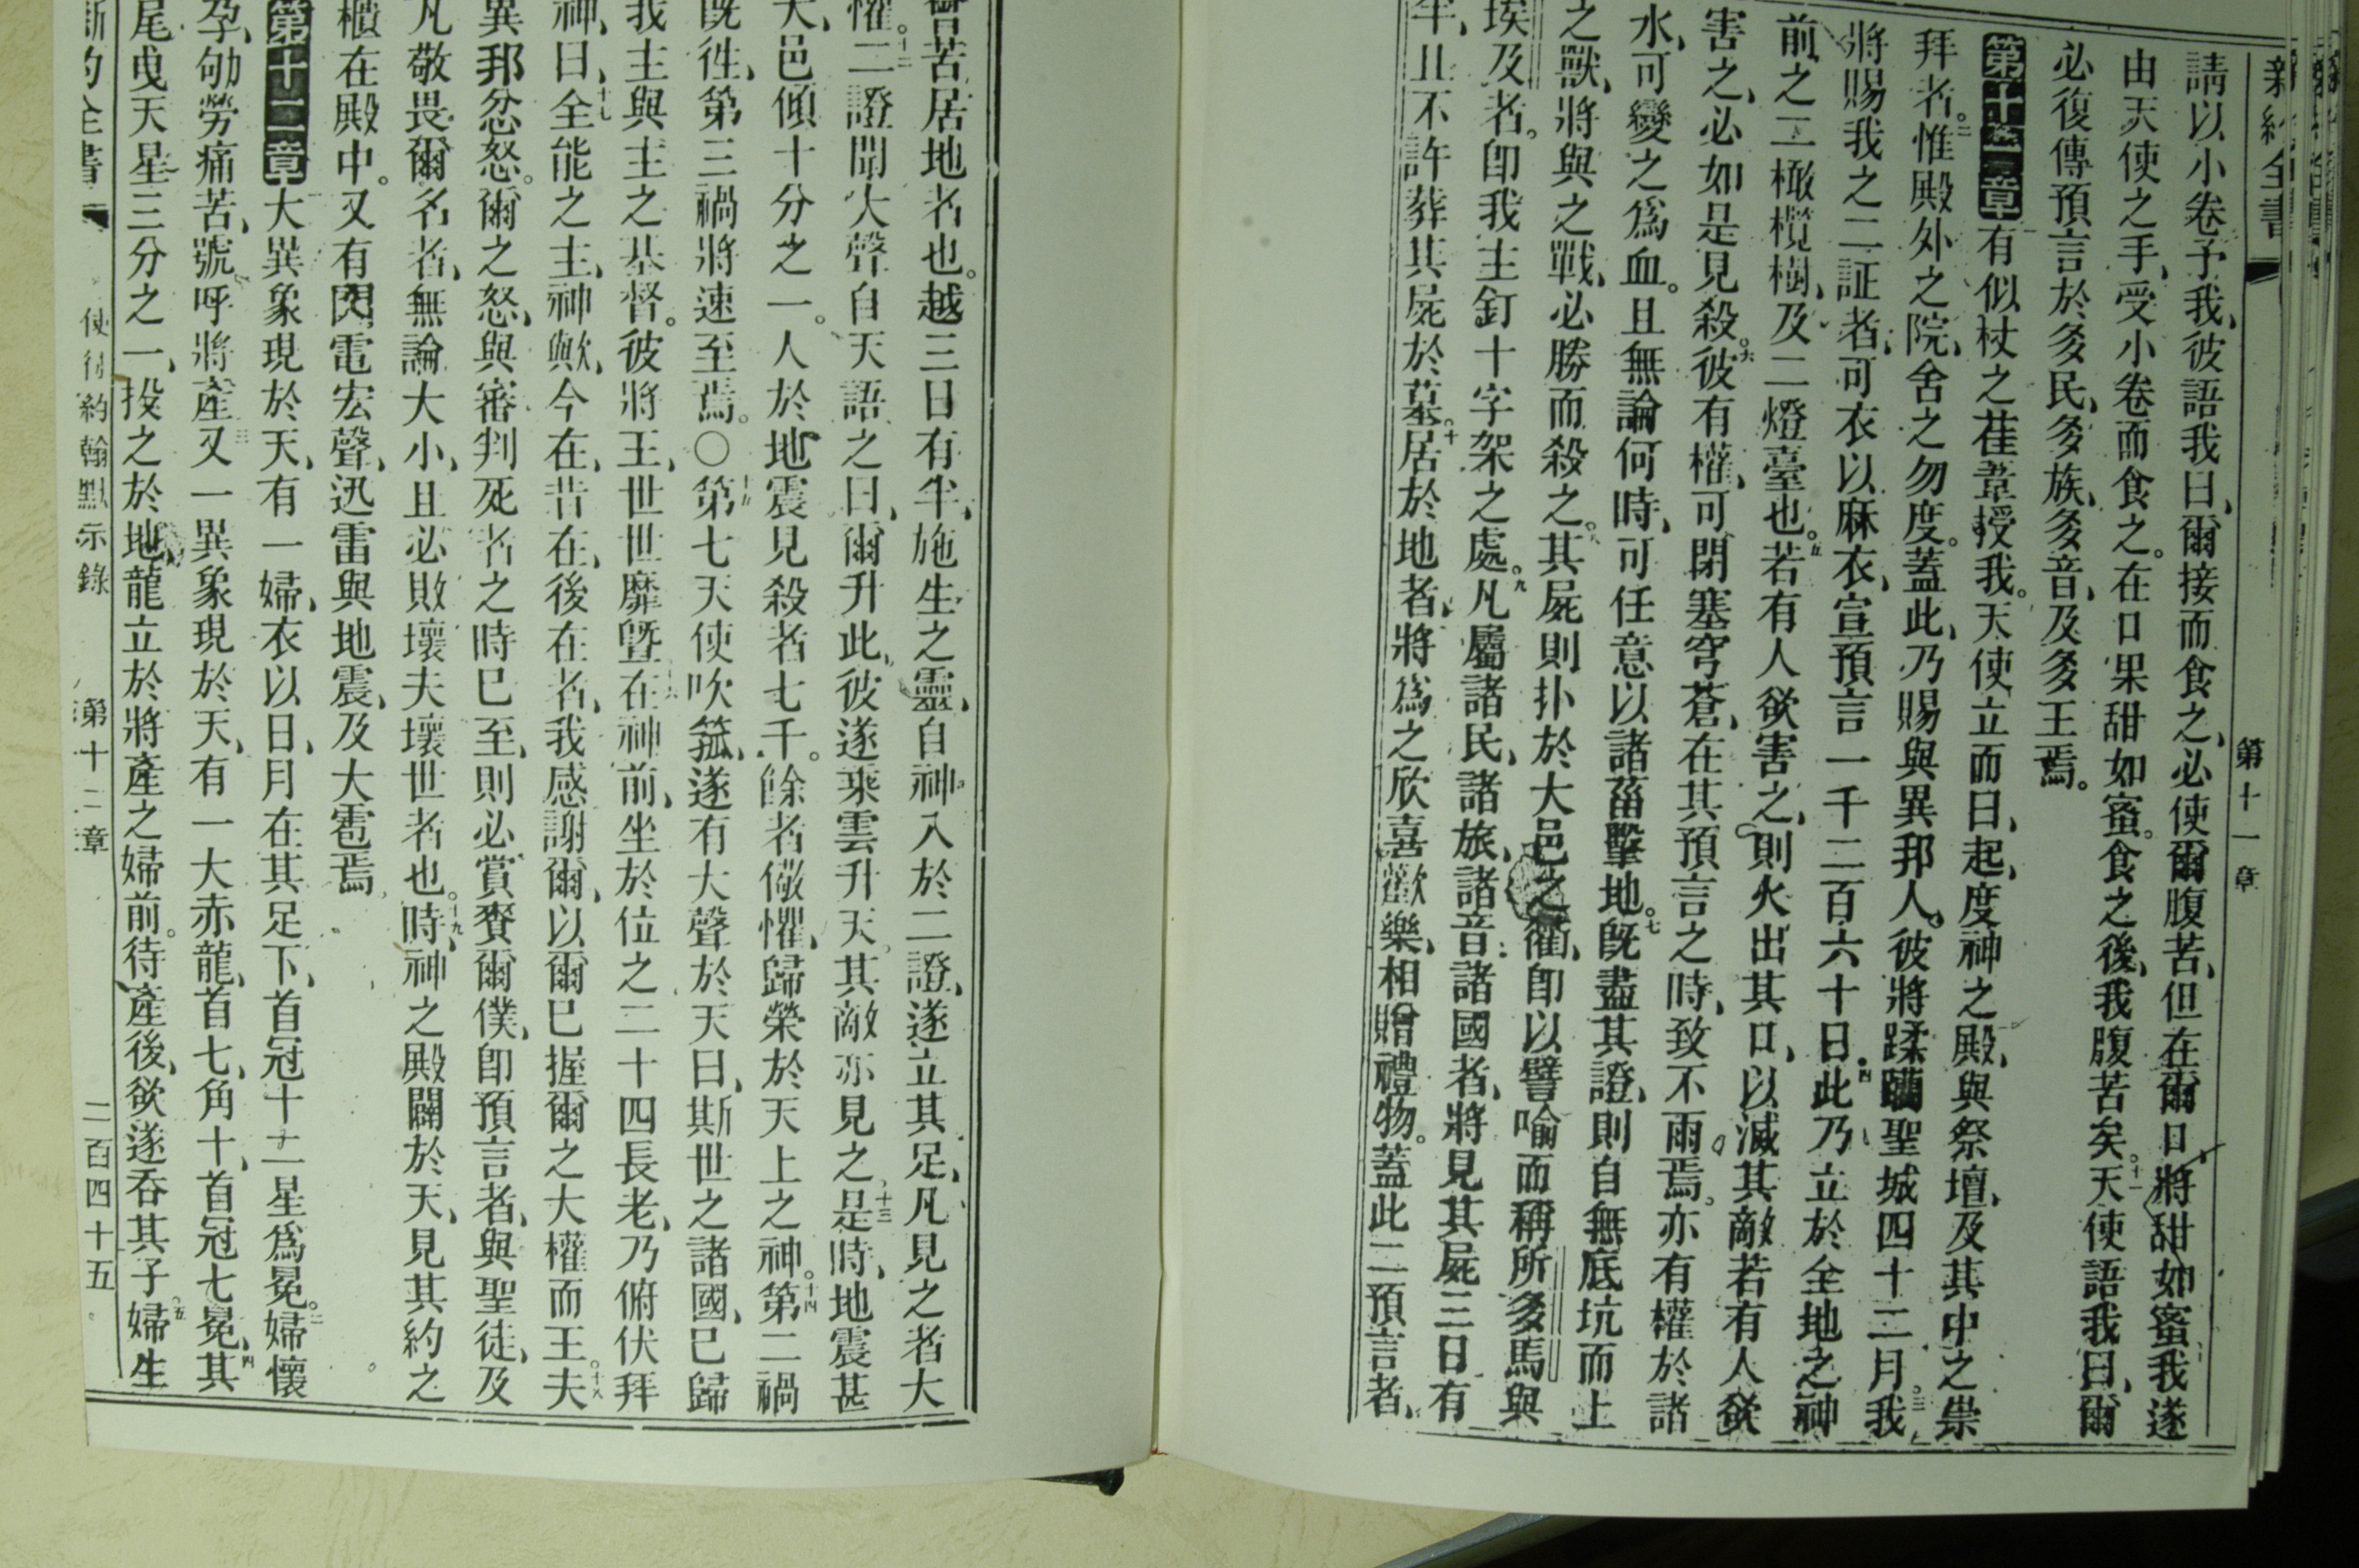 新約全書
第十一章
請以小卷予我、彼語我曰、爾接而食之、必使爾腹苦、但在爾口將甜如蜜我遂
由天使之手、受小卷而食之。在口果甜如蜜。食之後、我腹苦矣。十一天使語我曰、爾
必復傳預言於多民、多族、多音、及多王焉。
第十一章有似杖之萑葦授我。天使立而曰、起、度神之殿、與祭壇、及其中之崇
拜者。二惟殿外之院、舍之勿度。蓋此、乃賜與異邦人。彼將蹂躪聖城四十二月。三我
將賜我之二証者、可衣以麻衣、宣預言一千二百六十日。四此乃立於全地之神
前之二橄欖樹、及二燈臺也。五若有人欲害之、則火出其口、以滅其敵若有人欲
害之、必如是見殺。六彼有權、可閉塞穹蒼、在其預言之時、致不雨焉。亦有權於諸
水、可變之爲血。且無論何時、可任意以諸菑擊地。七旣盡其證、則自無底坑而上
之獸、將與之戰、必勝而殺之。八其屍則扑於大邑之衢、卽以譬喻而稱所多馬與
埃及者。卽我主釘十字架之處。九凡屬諸民、諸族、諸音、諸國者、將見其屍三日有
半、且不許葬其屍於墓。十居於地者、將爲之欣喜歡樂、相贈禮物。蓋此二預言者、
嘗苦居地者也。越三日有半、施生之靈、自神入於二證、遂立其足、凡見之者大
懼。十二二證聞大聲自天語之曰、爾升此、彼遂乘雲升天。其敵亦見之、十三是時、地震甚
大、邑傾十分之一。人於地震見殺者七千。餘者儆懼、歸榮於天上之神。十四第二禍
旣徃、第三禍將速至焉。○十五第七天使吹箛、遂有大聲於天曰、斯世之諸國、已歸
我主與主之基督。彼將王、世世靡曁十六在神前、坐於位之二十四長老、乃俯伏拜
神、曰、十七全能之主、神歟、今在、昔在、後在者、我感謝爾、以爾已握爾之大權而王。十八夫
異邦忿怒。爾之怒、與審判死者之時已至、則必賞賚爾僕、卽預言者、與聖徒、及
凡敬畏爾名者、無論大小、且必敗壞夫壞世者也。十九時、神之殿闢於天、見其約之
櫃在殿中。又有閃電宏聲、迅雷與地震、及大雹焉
第十二章大異象現於天、有一婦、衣以日、月在其足下、首冠十二星爲冕。二婦懷
孕、劬勞痛苦、號呼將產三又一異象現於天、有一大赤龍、首七、角十、首冠七冕、四其
尾曳天星三分之一、投之於地、龍立於將產之婦前。待產後、欲遂吞其子。五婦生
新約全書
使徒約翰默示錄
第十二章
二百四十五